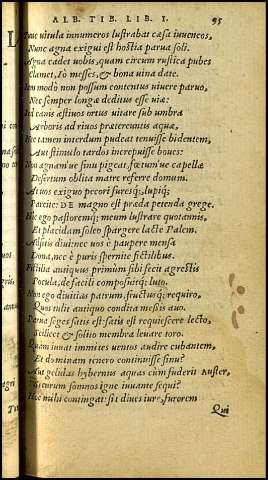 ALB. TIB. LIB. I. 95
Tunc uitula innumeros lustrabat cæsa iuuencos,
Nunc agna exigui est hostia parua soli.
Agna cadet uobis, quam circum rustica pubes
Clamet, Io messes, & bona uina date.
Iam modo non possum contentus uiuere paruo,
Nec semper longæ deditus esse uiæ:
Sed canis æstiuos ortus uitare sub umbra
Arboris ad riuos prætereuntis aquæ,
Nec tamen interdum pudeat tenuisse bidentem,
Aut stimulo tardos increpuisse boues:
Non agnamue sinu pigeat, fœtumue capellæ
Desertum oblita matre referre domum.
At uos exiguo pecori furesq; lupiq;
Parcite: DE magno est præda petenda grege.
Hic ego pastoremq; meum lustrare quotannis,
Et placidam soleo spargere lacte Palem.
Adsitis diui: nec uos è paupere mensa
Dona, nec è puris spernite fictilibus.
Fictilia antiquus primum sibi fecit agrestis
Pocula, de facili composuitq; luto.
Non ego diuitias patrum, fructusq; requiro,
Quos tulit antiquo condita messis auo.
Parua seges satis est: satis est requiescere lecto,
Scilicet & solito membra leuare toro.
Quam iuuat immites uentos audire cubantem,
Et dominam tenero continuisse sinu?
Aut gelidas hybernus aquas cùm fuderit Auster,
Securum somnos igne iuuante sequi?
Hoc mihi contingat: sit diues iure, furorem
Qui